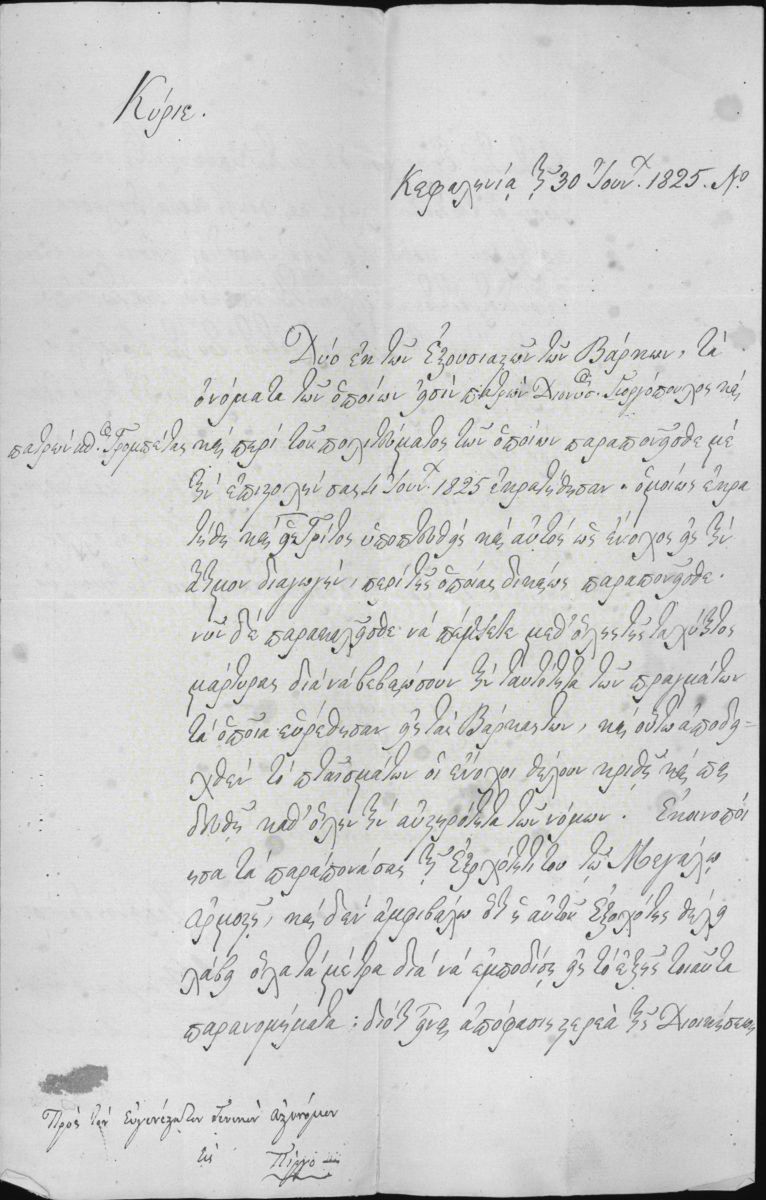 Κύριε.
Κεφαληνία τῇ 30 Ἰουν. 1825. Νο
Δύο ἐκ τῶν Ἐξουσιαστῶν τῶν Βάρκων, τὰ
ὀνόματα τῶν ὁποίων εἰσὶν πατρὼν Διονύσ. Γιοργόπουλος καὶ
πατρὼν Τρομπέτας καὶ περὶ τοῦ πολιτεύματος τῶν ὁποίων παραπονεῖσθε μὲ
τὴν ἐπιστολήν σας Ἰουν. 1825 ἐκρατήθησαν. ὁμοίως ἐκρα
τήθη καὶ Τρίτος ὑποπτευθεὶς καὶ αὐτὸς ὡς ἔνοχος εἰς τὴν
ἄτιμον διαγωγήν, περὶ τῆς ὁποίας δικαίως παραπονεῖσθε.
νῦν δὲ παρακαλεῖσθε νὰ πέμψετε μεθ' ὅλης τῆς ταχύτητος
μάρτυρας διὰ νὰ βεβαιώσουν τὴν ταυτότητα τῶν πραγμάτων
τὰ ὁποῖα εὑρέθησαν εἰς ταῖς Βάρκαις των, καὶ οὕτω ἀποδει=
χθὲν τὸ πταῖσμά των οἱ ἔνοχοι θέλουν κριθεῖ καὶ παι
δευθεῖ καθ' ὅλην τὴν αὐστηρότητα τῶν νόμων. Ἐκοινοποί
ησα τὰ παράπονά σας τῇ Ἐξοχότητί του τῷ Μεγάλῳ
Ἁρμοστῇ, καὶ δὲν ἀμφιβάλω ὅτι ἡ αὐτοῦ Ἐξοχότης θέλει
λάβει ὅλα τὰ μέτρα διὰ νὰ ἐμποδίσῃ εἰς τὸ ἑξῆς τοιαῦτα
παρανομήματα: διότι εἶναι ἀπόφασις στερεὰ τῆς Διοικήσεως
Πρὸς τὸν Εὐγενέστατον Γενικὸν Ἀστυνόμον
εἰς Πύργο